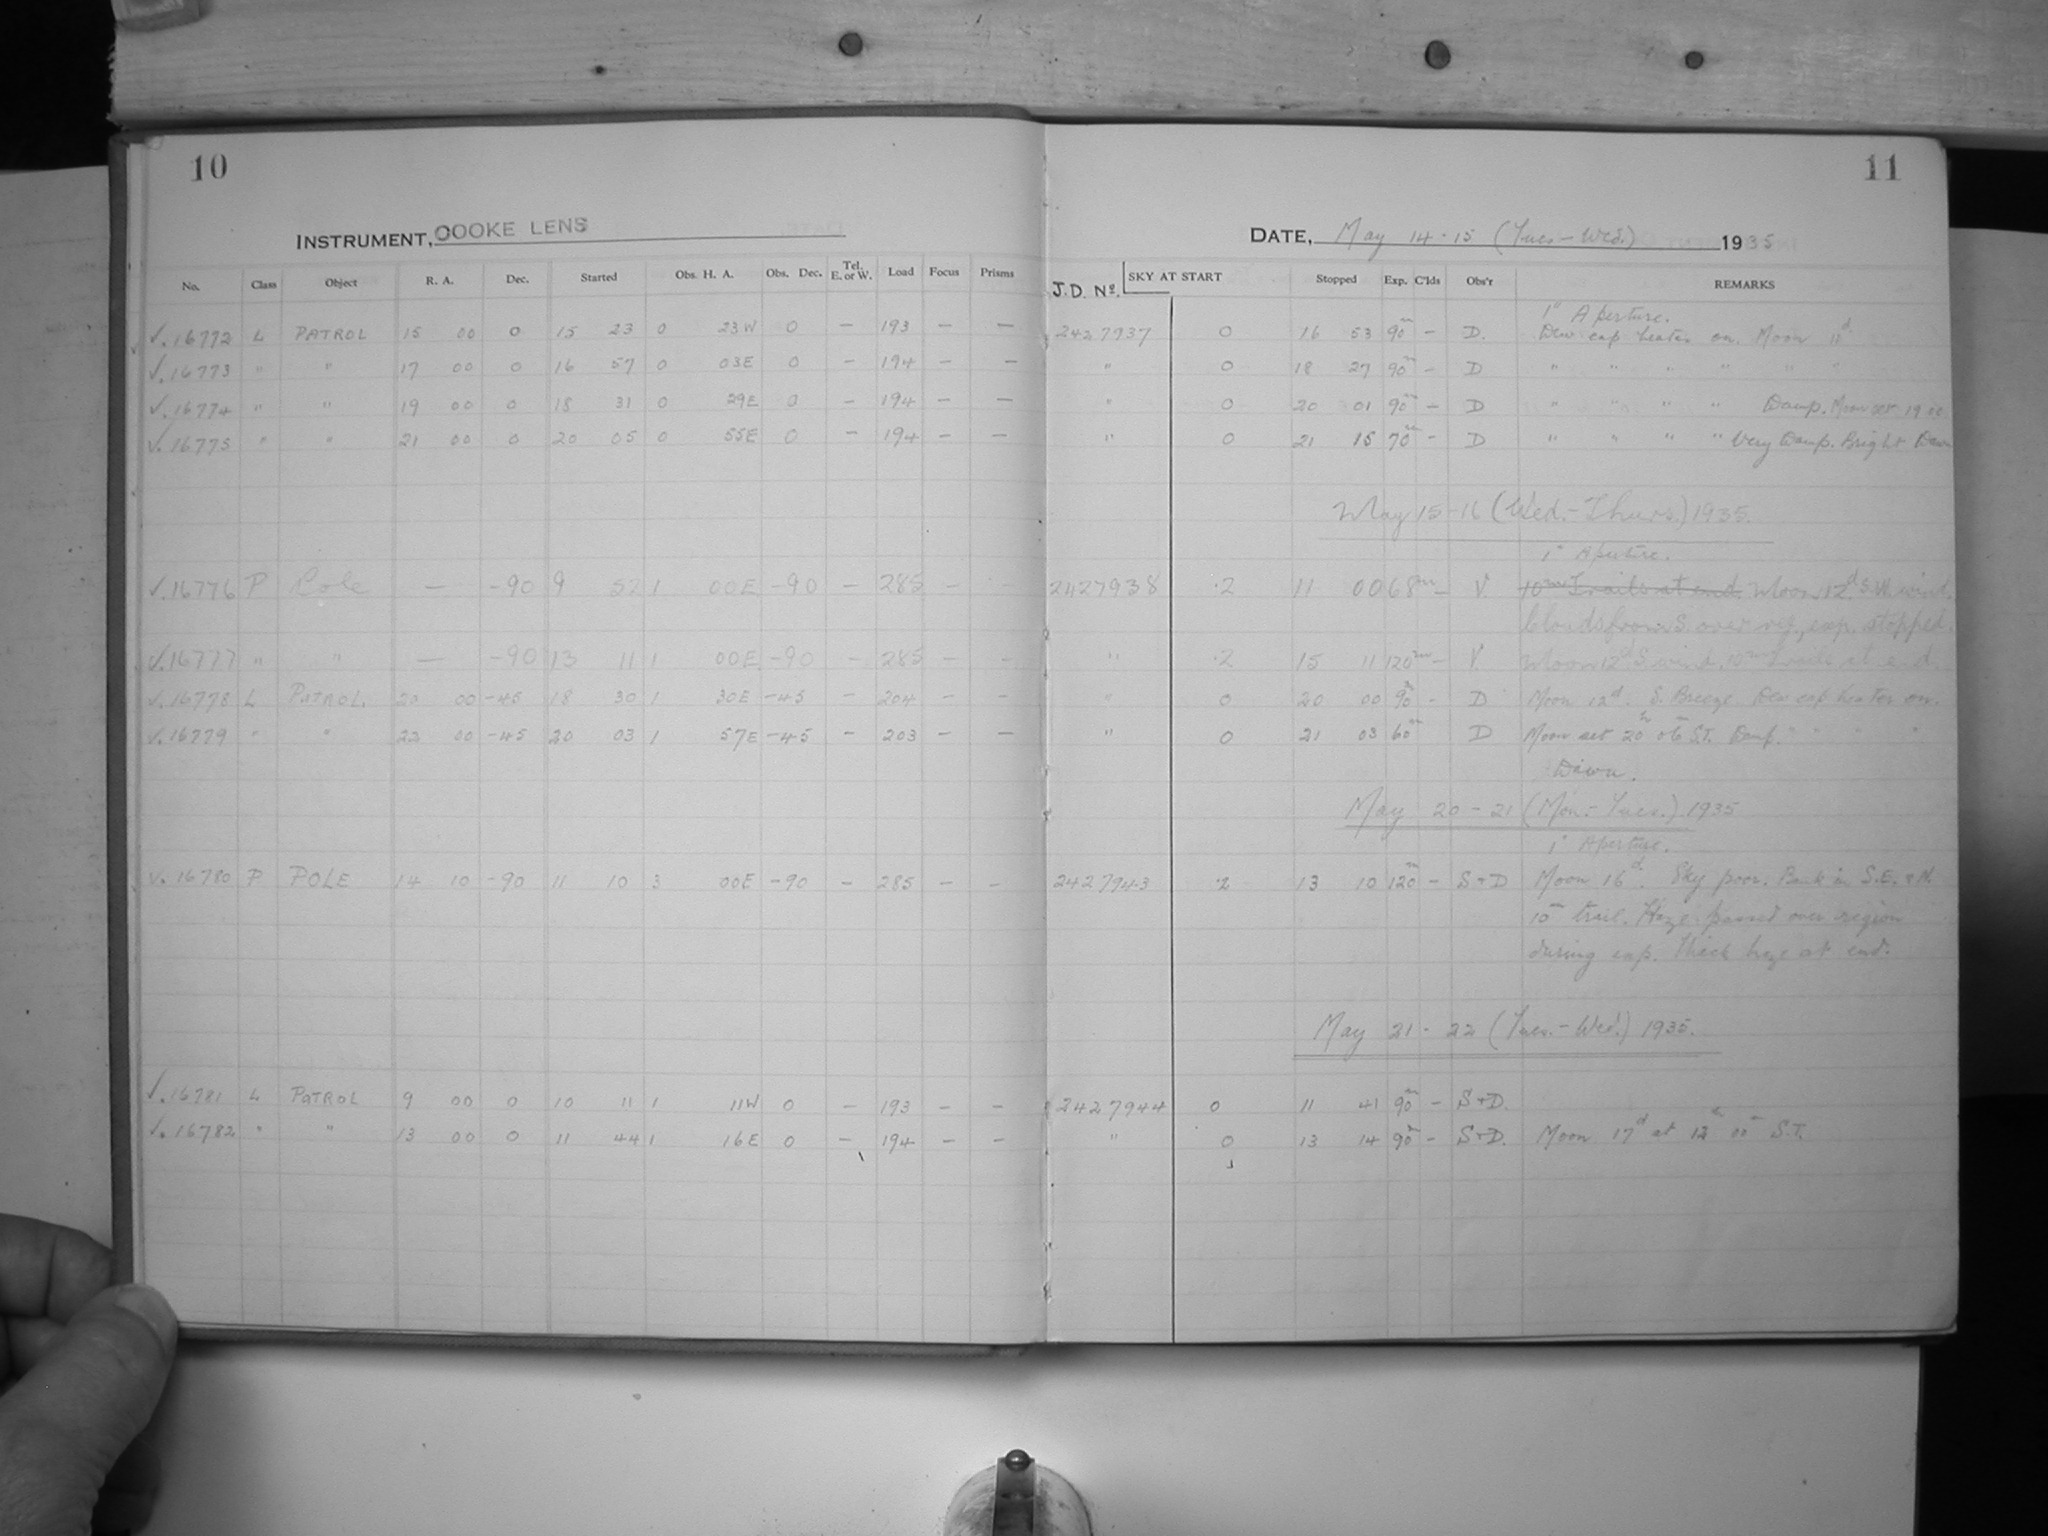 10
11
INSTRUMENT, COOKE LENS
DATE, May 14-15 (Tues-Wed.) 1935
No. Class Object R. A. Dec. Started Obs. H. A. Obs. Dec. Tel. E. or W. Load Focus Prisms J.D. No. SKY AT START Stopped Exp. C'lds Obs'r REMARKS
1" Aperture.
√.16772 L PATROL 15 00 0 15 23 0 23W 0 — 193 — — 2427937 0 16 53 90m — D. Dew cap heater on. Moon 11d
√.16773 " " 17 00 0 16 57 0 03E 0 — 194 — — " 0 18 27 90m — D " " " " " "
√.16774 " " 19 00 0 18 31 0 29E 0 — 194 — — " 0 20 01 90m — D " " " " Damp. Moon set
√.16775 " " 21 00 0 20 05 0 55E 0 — 194 — — " 0 21 15 70m — D " " " " Very Damp. Bright Dawn
May 15-16 (Wed.-Thurs.) 1935.
1" Aperture.
√.16776 P Pole — -90 9 52 1 00E -90 — 285 — — 2427938 .2 11 00 68m — V. 10m Trails at end. Moon 12d. S.W. wind.
Clouds from S. over reg., exp. stopped.
√.16777 " " — -90 13 11 1 00E -90 — 285 — — " .2 15 11 120m — V. Moon 12d S. wind, 10m trails at end.
√.16778 L PATROL. 20 00 -45 18 30 1 30E -45 — 204 — — " 0 20 00 90m — D Moon 12d. S. Breeze. Dew cap heater on.
√.16779 " " 22 00 -45 20 03 1 57E -45 — 203 — — " 0 21 03 60m D Moon set 20h 06m S.T. Damp. " " " "
Dawn.
May 20-21 (Mon.-Tues.) 1935
1" Aperture.
√.16780 P POLE 14 10 -90 11 10 3 00E -90 — 285 — — 2427943 .2 13 10 120m — S+D Moon 16d. Sky poor. Bank in S.E. + N.
10m trail. Haze passed over region
during exp. Thick haze at end.
May 21-22 (Tues.-Wed.) 1935.
√.16781 L PATROL 9 00 0 10 11 1 11W 0 — 193 — — 2427944 0 11 41 90m — S+D.
√.16782 " " 13 00 0 11 44 1 16E 0 — 194 — — " 0 13 14 90m — S+D. Moon 17d at 12h 00m S.T.